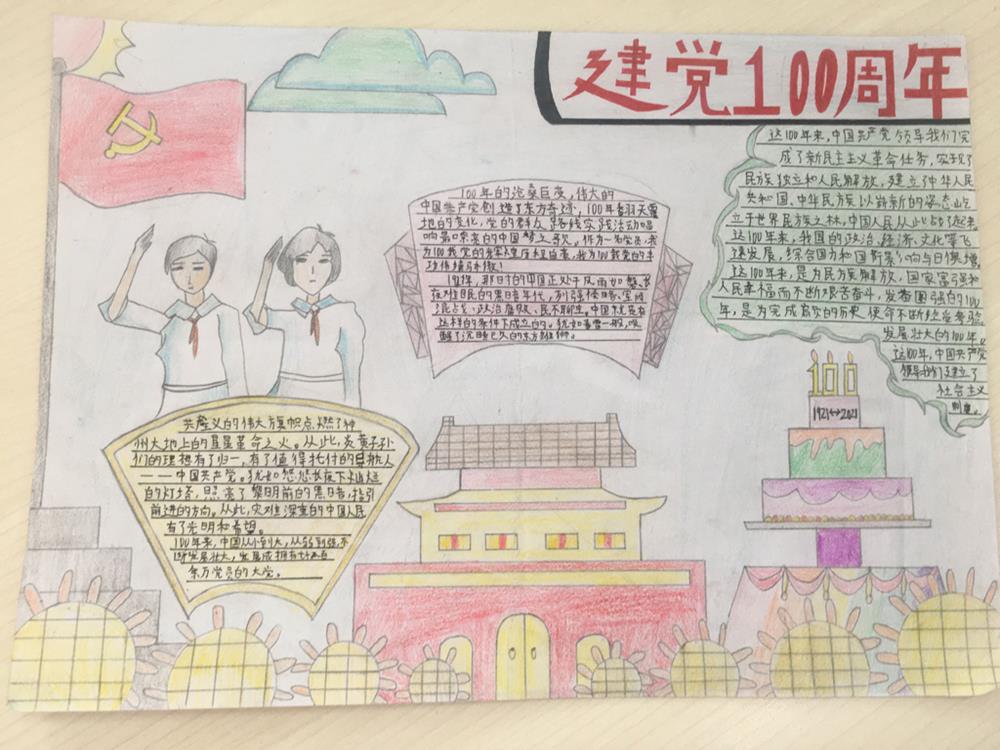 建党100周年
这100年来,中国共产党领导我们完
成了新民主主义革命任务,实现了
民族独立和人民解放,建立了中华人民
共和国,中华民族以崭新的姿态屹
立于世界民族之林,中国人民从此站了起来。
这100年来,我国的政治,经济,文化等飞
速发展,综合国力和国际影响与日俱增
这100年来,是为民族解放,国家富强和
人民幸福而不断艰苦奋斗,发奋图强的100
年,是为完成的历史使命不断经受考验
发展壮大的100年。
这100年,中国共产党
领导我们建立了
社会主义
制度。
100年的沧桑巨变,伟大的
中国共产党创造了东方奇迹,100年翻天覆
地的变化,党的群众路线实践活动唱
响最嘹亮的中国梦之歌,作为一名党员,我
为100载党的感到自豪,我为100载党的丰
功伟绩
1921年,那时的中国正处于风雨如磐、苦
在难眠的黑暗年代,列强侵略、军阀
混战、政治腐败、民不聊生,中国就是在
这样的条件下成立的。犹如春雷一般,唤
醒了沉睡已久的东方雄狮。
共产主义的伟大旗帜点燃了神
州大地上的星星革命之火。从此,炎黄子孙
们的理想有了归一,有了值得托付的导航人
——中国共产党。犹如悠悠长夜下
的灯塔,照亮了黎明前的黑暗,指引
前进的方向。从此,灾难深重的中国人民
有了光明和希望。
100年来,中国从小到大,从弱到强,不
断发展壮大,发展成拥有
余万党员的大党。
100
1921↔2021